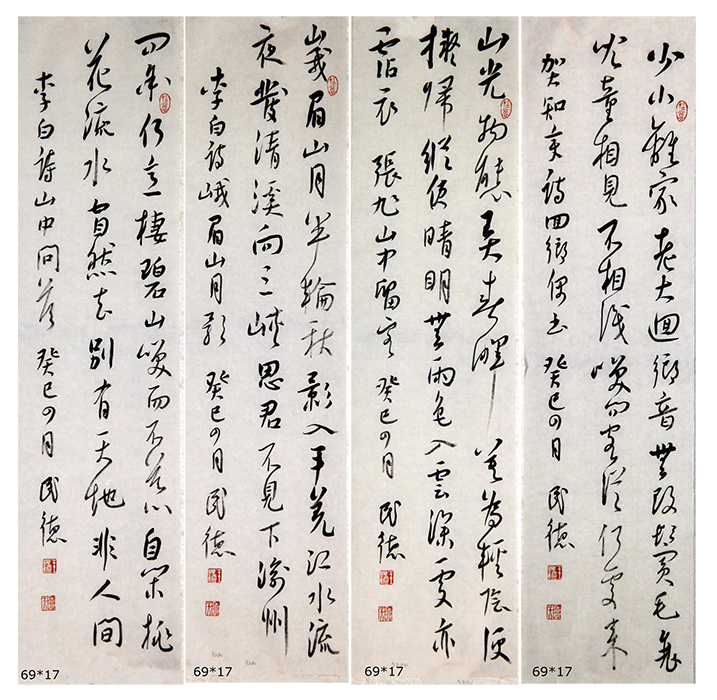 少小離家老大迴鄉音無改鬢毛衰
兒童相見不相識咲問客從何處來
賀知章詩回鄉偶書 癸巳四月 民德
69*17
山光物態弄春暉莫為輕陰便
擬歸縱使晴明無雨色入雲深處亦
霑衣 張旭山中留客 癸巳四月 民德
69*17
峩眉山月半輪秋影入平羌江水流
夜發清溪向三峽思君不見下渝州
李白詩峨眉山月歌 癸巳四月 民德
69*17
問余何意棲碧山咲而不答心自閑桃
花流水窅然去別有天地非人間
李白詩山中問答 癸巳四月 民德
69*17